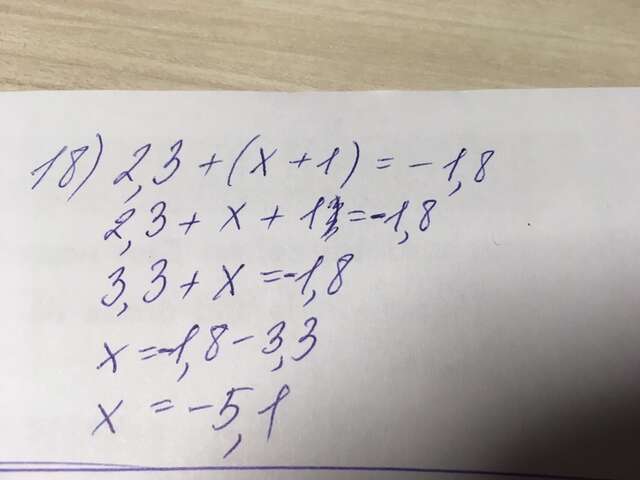 18) 2,3 + (x + 1) = -1,8
2,3 + x + 1 = -1,8
3,3 + x = -1,8
x = -1,8 - 3,3
x = -5,1